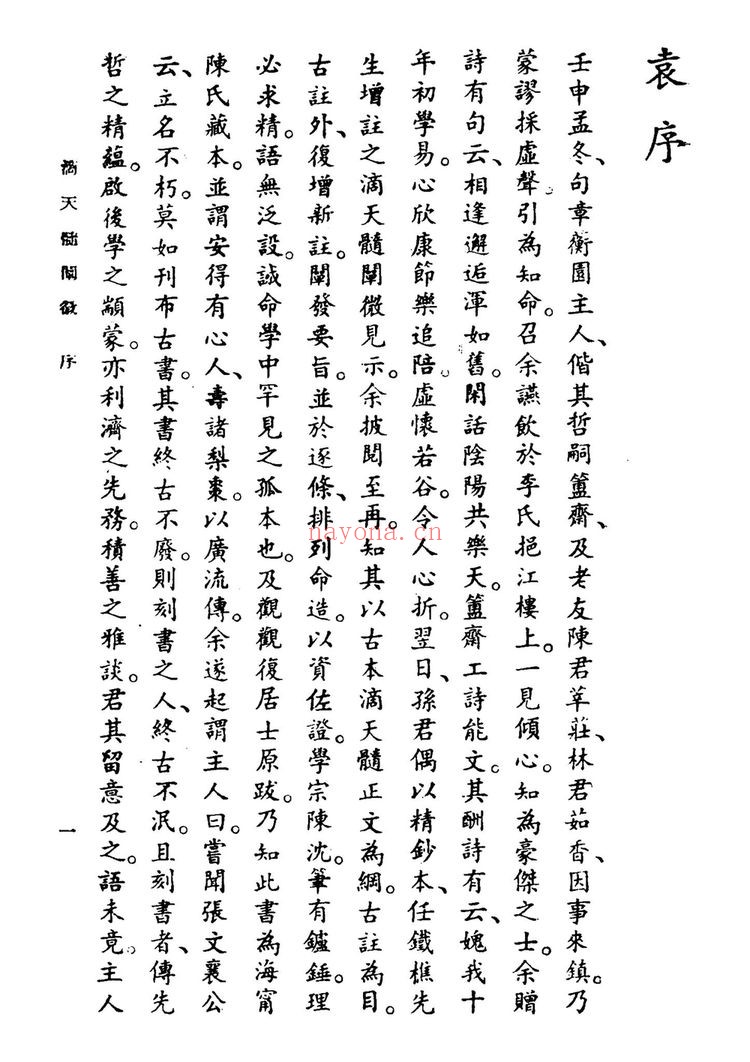 袁序
壬申孟冬、句章蘅園主人、偕其哲嗣簠齋、及老友陳君莘莊、林君茹香、因事來鎮。乃
蒙謬採虛聲。引為知命。召余讌飲於李氏挹江樓上。一見傾心。知為豪傑之士。余贈
詩有句云、相逢邂逅渾如舊。閑話陰陽共樂天。簠齋工詩能文。其酬詩有云、媿我十
年初學易。心欣康節樂追陪。虛懷若谷。令人心折。翌日、孫君偶以精鈔本、任鐵樵先
生增註之滴天髓闡微見示。余披閱至再。知其以古本滴天髓正文為綱。古註為目。
古註外、復增新註。闡發要旨。並於逐條、排列命造。以資佐證。學宗陳沈。筆有鑪錘。理
必求精。語無泛設。誠命學中罕見之孤本也。及觀觀復居士原跋。乃知此書為海甯
陳氏藏本。並謂安得有心人、壽諸梨棗。以廣流傳。余遂起謂主人曰。嘗聞張文襄公
云、立名不朽。莫如刊布古書。其書終古不廢。則刻書之人、終古不泯。且刻書者、傳先
哲之精蘊。啟後學之顓蒙。亦利濟之先務。積善之雅談。君其留意及之。語未竟。主人
滴天髓闡微 序
一
nayona.cn